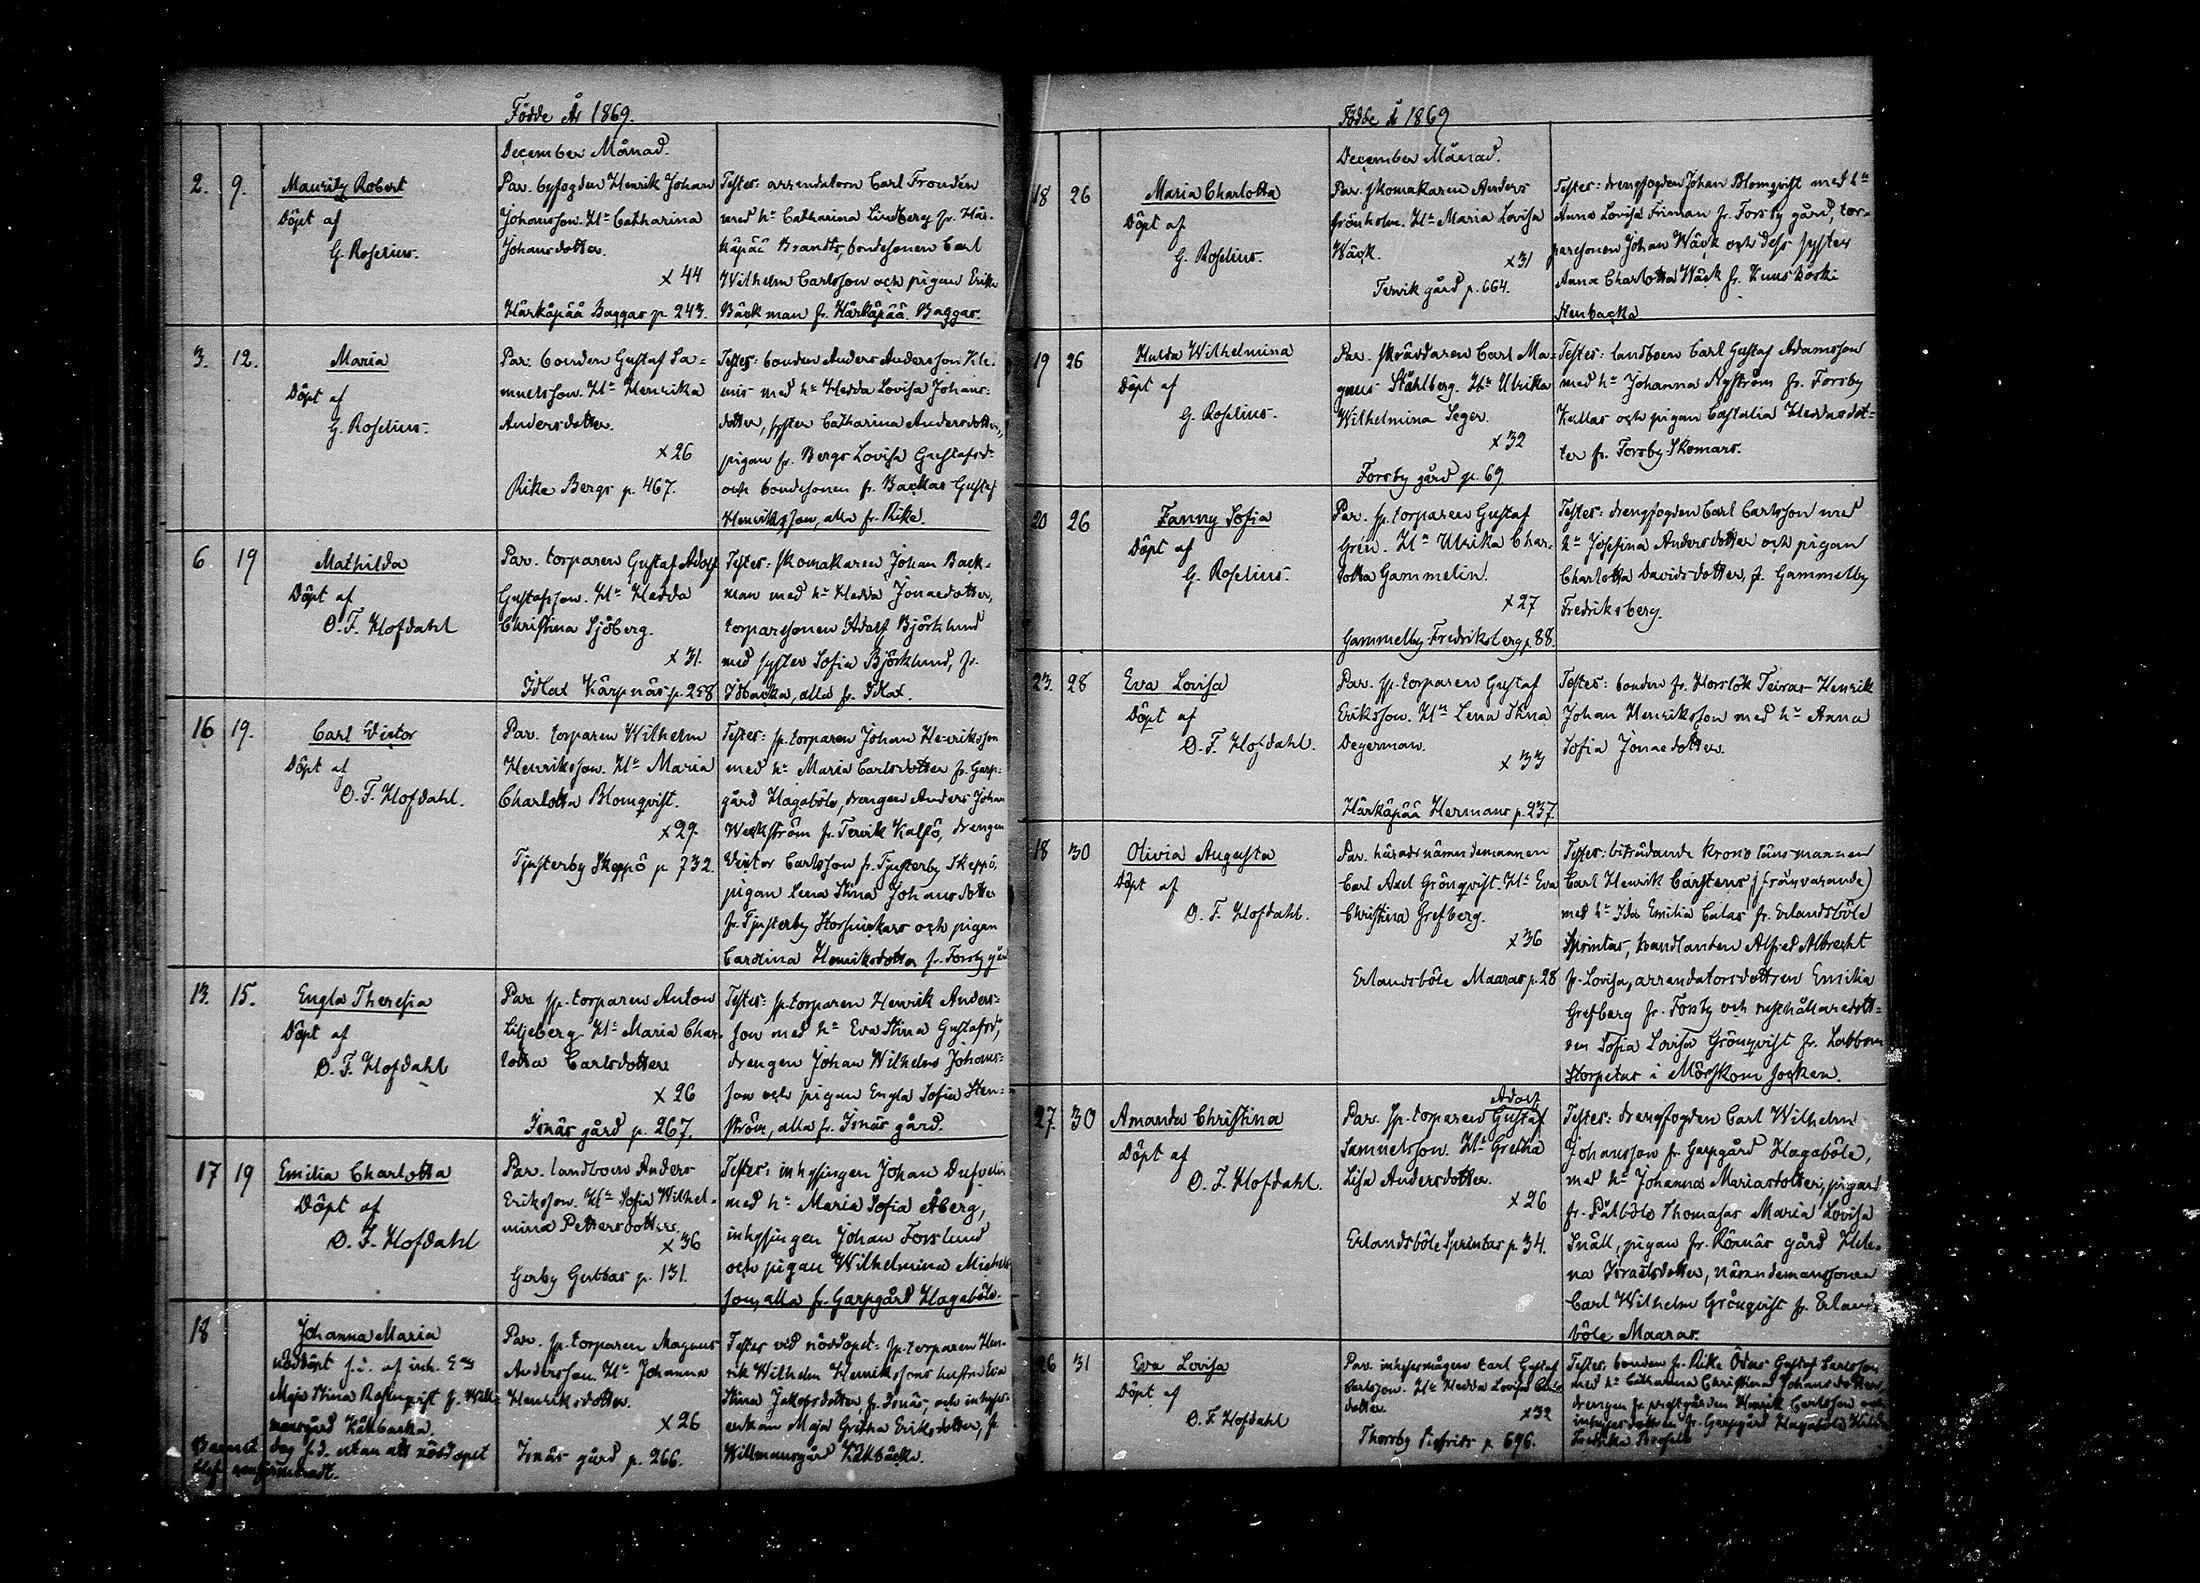 Födde År 1869.
December Månad.
2. 9. Mauritz Robert
Döpt af
G. Roselius.
Par. byfogden Henrik Johan
Johansson. H:u Catharina
Johansdotter.
x 44
Härkäpää Baggas p. 243.
Testes: arrendatorn Carl Frondén
med h:u Catharina Lindberg fr. Här-
käpää Brandts, bondesonen Carl
Wilhelm Carlsson och pigan Erika
Bäckman fr. Härkäpää Baggas.
3. 12. Maria
Döpt af
G. Roselius.
Par. bonden Gustaf Sa-
muelsson. H:u Henrika
Andersdotter.
x 26
Rike Bergs p. 467.
Testes: bonden Anders Andersson Kle-
mis med h:u Hedda Lovisa Johans-
dotter, syster Catharina Andersdotter,
pigan fr. Bergs Lovisa Gustafsd:
och bondesonen fr. Backas Gustaf
Henriksson, alla fr. Rike.
6. 19 Mathilda
Döpt af
O. F. Hofdahl
Par. torparen Gustaf Adolf
Gustafsson. H:u Hedda
Christina Sjöberg.
x 31.
Idlax Kärpnäs p. 258
Testes: skomakaren Johan Back-
man med h:u Hedda Jonaedotter,
torparesonen Adolf Björklund
med syster Sofia Björklund, fr.
alla fr. Idlax.
16 19. Carl Victor
Döpt af
O. F. Hofdahl.
Par. torparen Wilhelm
Henriksson. H:u Maria
Charlotta Blomqvist.
x 29.
Tjusterby Skeppö p 732.
Testes: sp. torparen Johan Henriksson
med h:u Maria Carlsdotter fr. Garp-
gård Hagaböle, drengen Anders Johan
Weckström fr. Tervik Kalfö, drengen
Victor Carlsson fr. Tjusterby Skeppö,
pigan Lena Stina Johansdotter
fr. Tjusterby och pigan
Carolina Henriksdotter fr. Forsby gård
13. 15. Engla Theresia
Döpt af
O. F. Hofdahl
Par. sp. torparen Anton
Liljeberg. H:u Maria Char-
lotta Carlsdotter
x 26
Isnäs gård p. 267.
Testes: sp. torparen Henrik Anders-
son med h:u Eva Stina Gustafsd:,
drengen Johan Wilhelm Johans-
son och pigan Engla Sofia Sten-
ström, alla fr. Isnäs gård.
17 19 Emilia Charlotta
Döpt af
O. F. Hofdahl
Par. landboen Anders
Eriksson. H:u Sofia Wilhel-
mina Pettersdotter
x 36
Gerby Gubbas p. 131.
Testes: inhysingen Johan
med h:u Maria Sofia Åberg,
inhysingen Johan Forslund
och pigan Wilhelmina Michels-
son, alla fr. Garpgård Hagaböle.
18 Johanna Maria
nöddöpt s. d. af inh. E:an
Maja Stina Rosenqvist fr. Will-
mansgård Käkbacka.
Barnet dog s. d. utan att nöddopet
blef confirmeradt.
Par. sp. torparen Magnus
Andersson. H:u Johanna
Henriksdotter.
x 26
Isnäs gård p. 266.
Testes vid nöddopet: sp. torparen Hen-
rik Wilhelm Henrikssons hustru Eva
Stina Jakobsdotter, fr. Isnäs, och inhyses-
enkan Maja Gretha Eriksdotter, fr
Willmansgård Käkbacka.
Födde År 1869
December Månad.
18 26 Maria Charlotta
Döpt af
G. Roselius.
Par. skomakaren Anders
Grönholm. H:u Maria Lovisa
Wäck.
x 31
Tervik gård p. 664.
Testes: drengfogden Johan Blomqvist med h:u
Anna Lovisa Friman fr. Forsby gård, tor-
paresonen Johan Wäck och dess syster
Anna Charlotta Wäck fr. Kuuskoski
Stenbacka
19 26 Hulda Wilhelmina
Döpt af
G. Roselius.
Par. skräddaren Carl Ma-
gnus Ståhlberg. H:u Ulrika
Wilhelmina Seger.
x 32
Forsby gård p. 69
Testes: landboen Carl Gustaf Adamsson
med h:u Johanna Nyström fr. Forsby
Kullas och pigan Castalia Heddasdot-
ter fr. Forsby Skomars.
20 26 Fanny Sofia
Döpt af
G. Roselius.
Par. sp. torparen Gustaf
Grén. H:u Ulrika Char-
lotta Gammelin.
x 27
Gammelby Fredriksberg p. 88.
Testes: drengfogden Carl Carlsson med
h:u Josefina Andersdotter och pigan
Charlotta Davidsdotter, fr. Gammelby
Fredriksberg.
23. 28 Eva Lovisa
Döpt af
O. F. Hofdahl.
Par. sp. torparen Gustaf
Eriksson. H:u Lena Stina
Degerman.
x 33
Härkäpää Hermans p. 237.
Testes: bonden fr. Horslök Teiras Henrik
Johan Henriksson med h:u Anna
Sofia Jonaedotter.
18 30 Olivia Augusta
Döpt af
O. F. Hofdahl.
Par. häradsnämndemannen
Carl Axel Grönqvist. H:u Eva
Christina Grefberg.
x 36
Erlandsböle Maaras p. 28
Testes: biträdande kronolänsmannen
Carl Henrik Carstens (frånvarande)
med h:u Ida Emilia Calas fr. Erlandsböle
Sprintas, handlanden Alfred Albrecht
fr. Lovisa, arrendatorsdottren Emilia
Grefberg fr. Forsby och rusthållaredott-
ren Sofia Lovisa Grönqvist fr. Labbom
Storpetas i Mörskom socken.
27. 30 Amanda Christina
Döpt af
O. F. Hofdahl.
Par. sp. torparen Adolf Gustaf
Samuelsson. H:u Gretha
Lisa Andersdotter.
x 26
Erlandsböle Sprintas p. 34.
Testes: drengfogden Carl Wilhelm
Johansson fr. Garpgård Hagaböle,
med h:u Johanna Mariasdotter, pigan
fr. Påtböle Thomasas Maria Lovisa
Snäll, pigan fr. Rönnäs gård Hele-
na Israelsdotter, nämndemanssonen
Carl Wilhelm Grönqvist fr. Erlands-
böle Maaras.
26 31 Eva Lovisa
Döpt af
O. F. Hofdahl
Par. inhysesmågen Carl Gustaf
Carlsson. H:u Hedda Lovisa Carls-
dotter.
x 32
Thorsby Sigfrids p. 696.
Testes: bonden fr. Rike Ödens Gustaf Carlsson
med h:u Catharina Christina Johansdotter,
drengen fr. prestgården Henrik Carlsson och
inhysesdottren fr. Garpgård Hagaböle
Fredrika